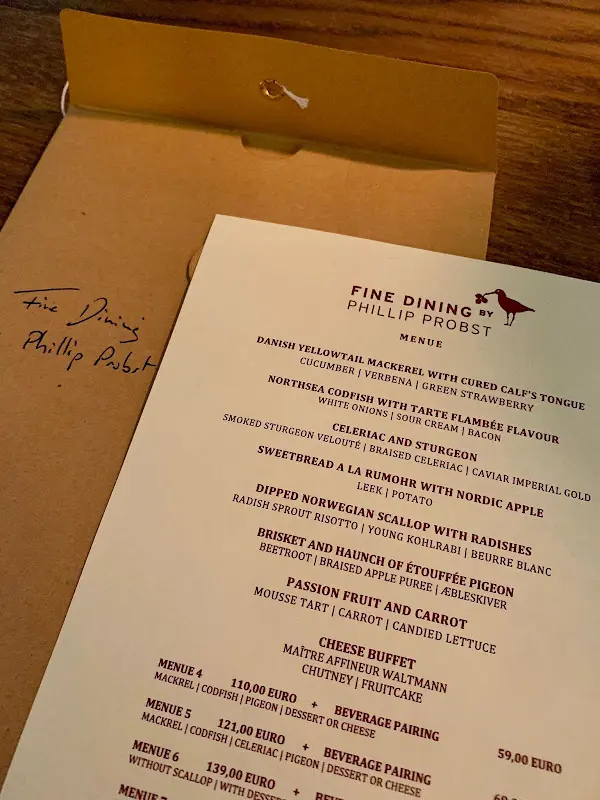 Fine Dining
Phillip Probst
FINE DINING BY
PHILLIP PROBST
MENUE
DANISH YELLOWTAIL MACKEREL WITH CURED CALF'S TONGUE
CUCUMBER | VERBENA | GREEN STRAWBERRY
NORTHSEA CODFISH WITH TARTE FLAMBÉE FLAVOUR
WHITE ONIONS | SOUR CREAM | BACON
CELERIAC AND STURGEON
SMOKED STURGEON VELOUTÉ | BRAISED CELERIAC | CAVIAR IMPERIAL GOLD
SWEETBREAD A LA RUMOHR WITH NORDIC APPLE
LEEK | POTATO
DIPPED NORWEGIAN SCALLOP WITH RADISHES
RADISH SPROUT RISOTTO | YOUNG KOHLRABI | BEURRE BLANC
BRISKET AND HAUNCH OF ÉTOUFFÉE PIGEON
BEETROOT | BRAISED APPLE PUREE | ÆBLESKIVER
PASSION FRUIT AND CARROT
MOUSSE TART | CARROT | CANDIED LETTUCE
CHEESE BUFFET
MAÎTRE AFFINEUR WALTMANN
CHUTNEY | FRUITCAKE
MENUE 4 110,00 EURO + BEVERAGE PAIRING 59,00 EURO
MACKREL | CODFISH | PIGEON | DESSERT OR CHEESE
MENUE 5 121,00 EURO + BEVERAGE PAIRING
MACKREL | CODFISH | CELERIAC | PIGEON | DESSERT OR CHEESE
MENUE 6 139,00 EURO +
WITHOUT SCALLOP | WITH
MENUE